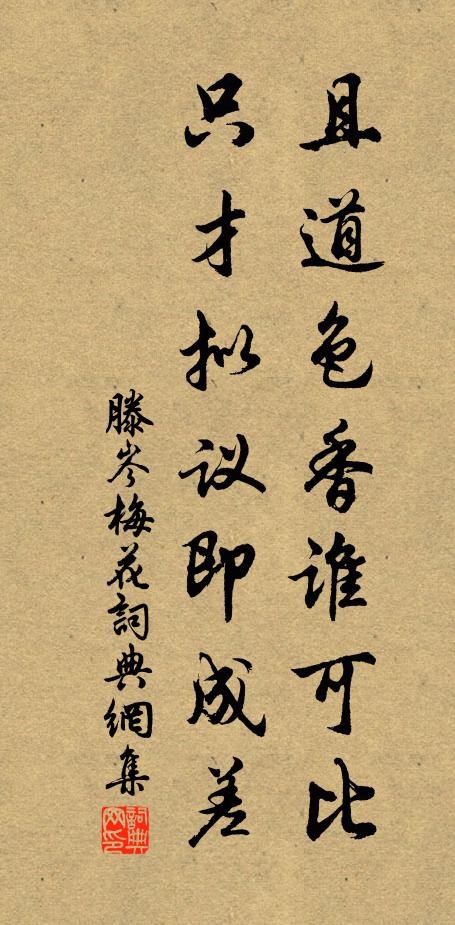 且道色香谁可比
只才拟议即成差
滕岑梅花詞典網集
詞典網印